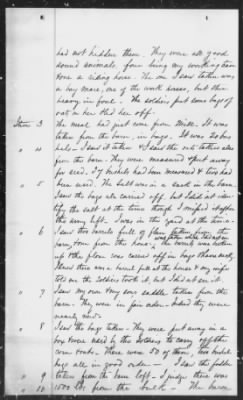 had not hidden them. They were all good
sound animals, four being my working team
one a riding horse. The one I saw taken was
a bay mare, one of the work horses, but then
heavy in foal. The soldiers put some bags of
oats on her & led her off.
Item 3 The meal had just come from Mill. It was
taken from the barn, in bags. It was 20 bus
hels - I saw it taken
" 4 I saw the oats taken also
from the barn. They were measured & put away
for seed. 57 bushels had been measured & two had
been used.
" 5 The salt was in a sack in the barn.
Saw the bags also carried off, but I did not iden-
tify the salt at the time though I missed it after
the army left. I was in the yard at the time -
" 6 I saw two barrels full of flour taken from the
barn, from the house, the barrels were broken
up & the flour was carried off in bags
There was a barrel full at the house & my wife
told me the soldiers took it, but I did not see it.
" 7 Saw my own army saddle taken from the
barn. They were in fair order. Indeed they were
nearly new
" 8 I saw the bags taken. They were put away in a
box & were used by the soldiers to carry off the
corn & oats. There were 50 of them, two bushel
bags all in good order -
" 9 I saw this fodder
taken from the barn loft. I judge there was
" 10 1500 lbs from the bulk - The bacon